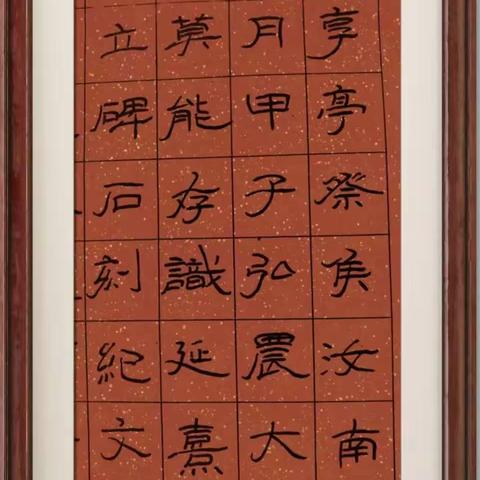 享亭祭侯汝南
月甲子弘農大
莫能存識延熹
立碑石刻紀文